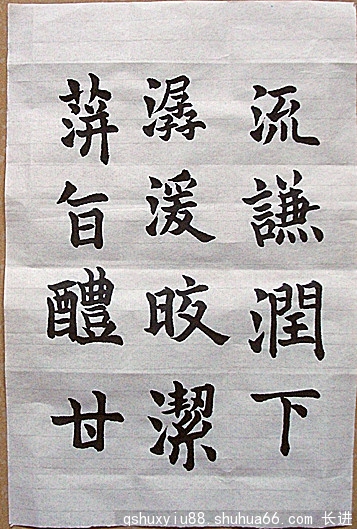 流謙潤下
潺湲皎潔
蓱旨醴甘
qshuxyiu88.shuhua66.com 长进